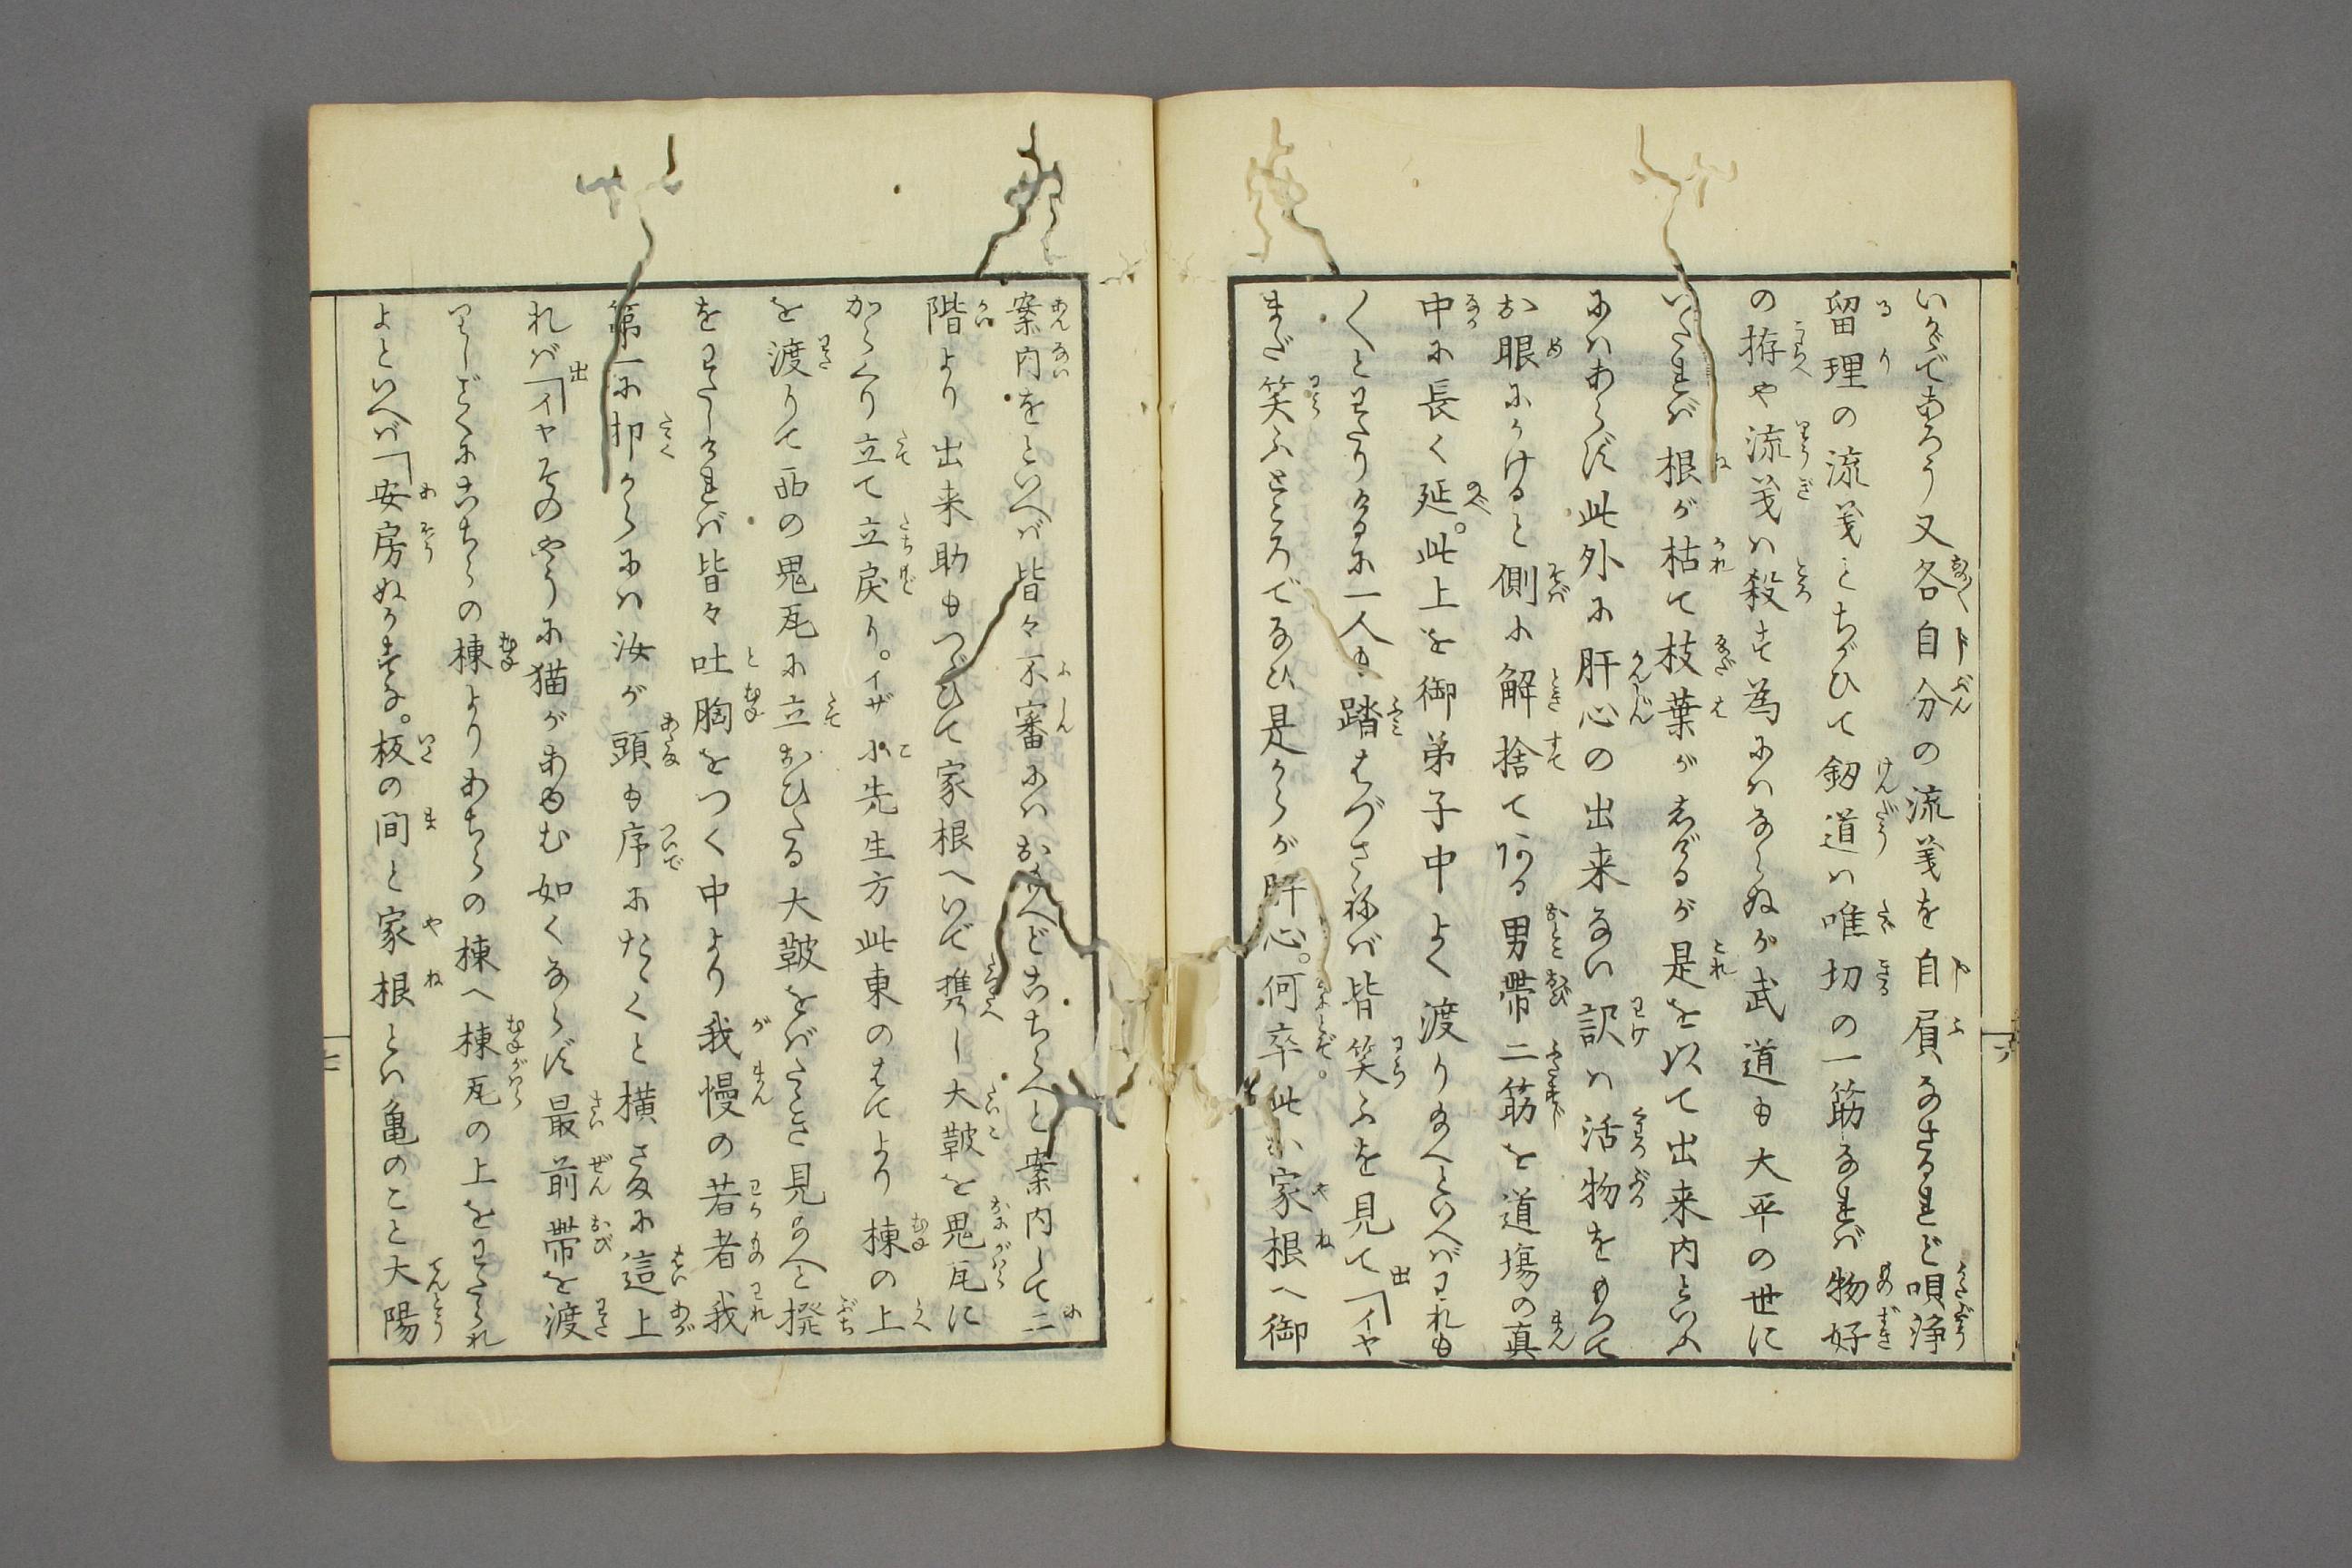 いかゞであろう又各自分の流義を自負なさるれど唄浄
留理の流義とちがひて釼道ハ唯切の一筋なれば物好
の拵や流義ハ殺す為にハならぬが武道も大平の世に
いたれば根が枯て枝葉がしげるが是を以て出来内といふ
にハあらず此外に肝心の出来ない訳ハ活物をもつて
お眼にかけると側に解捨てある男帯二筋を道場の真
中に長く延。此上を御弟子中よく渡り給へといへばわれも
〳〵とわたりけるに一人も踏はづさねば皆笑ふを見て「イヤ
まだ笑ふところでない是からが肝心。何卒此家根へ御
案内をといへば皆々不審にハおもへどこちらへと案内して二
階より出来助もつゞひて家根へいで携し大鞁を鬼瓦に
からくり立て立戻り。イザ小先生方此東のはてより棟の上
を渡りて西の鬼瓦に立おひたる大鞁をばたゝき見給へと撥
をわたしければ皆々吐胸をつく中より我慢の若者我
第一に抑からにハ汝が頭も序にたゝくと横さまに這上
れば「イヤそのやうに猫があゆむ如くならず最前帯を渡
りしごとくにこちらの棟よりあちらの棟へ棟瓦の上をわたられ
よといへば「安房ぬかすな。板の間と家根とハ亀のこと大陽